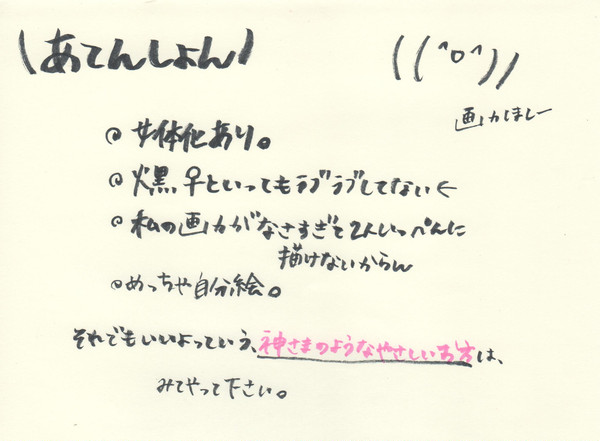 \あてんしょん/
((^o^))
画力ほしー
◎女体化あり。
◎火黒♀といってもラブラブしてない←
◎私の画力がなさすぎて2人いっぺんに
描けないからん
◎めっちゃ自分絵。
それでもいいよっという、神さまのようなやさしいお方は、
みてやって下さい。